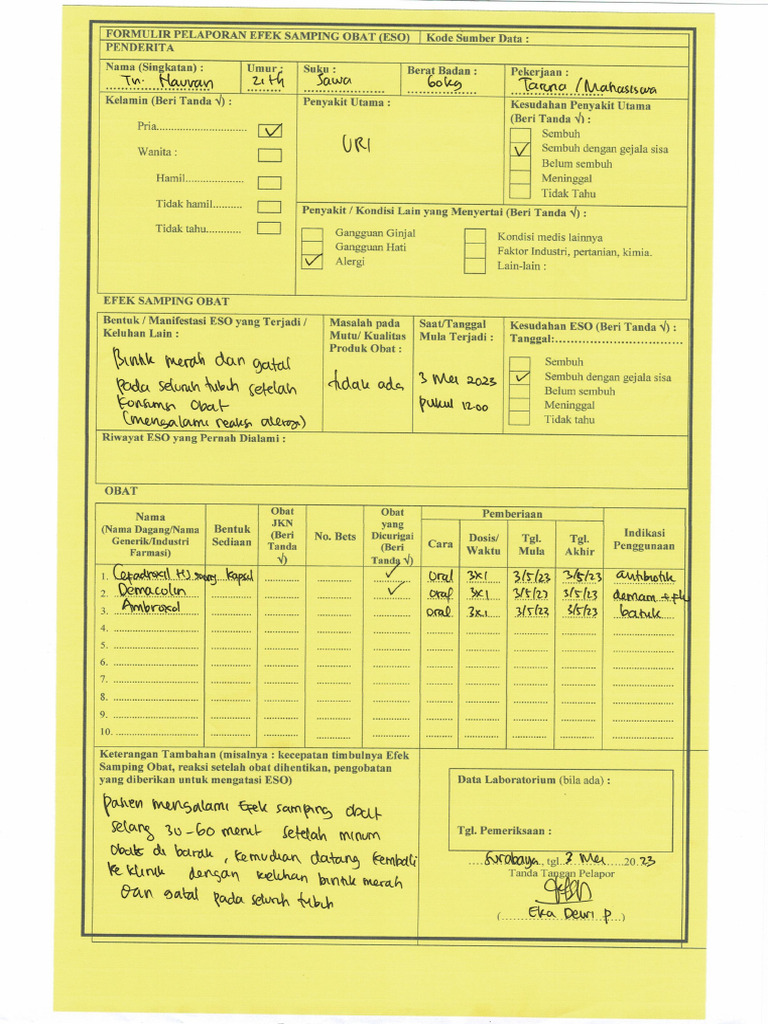 FORMULIR PELAPORAN EFEK SAMPING OBAT (ESO) Kode Sumber Data :
PENDERITA
Nama (Singkatan) : Umur : Suku : Berat Badan : Pekerjaan :
Tn. 21 th Jawa 60 kg Taruna / Mahasiswa
Kelamin (Beri Tanda √) :
Pria.................... ✓
Wanita :
Hamil....................
Tidak hamil..........
Tidak tahu..........
Penyakit Utama :
URI
Kesudahan Penyakit Utama
(Beri Tanda √) :
Sembuh
✓ Sembuh dengan gejala sisa
Belum sembuh
Meninggal
Tidak Tahu
Penyakit / Kondisi Lain yang Menyertai (Beri Tanda √) :
Gangguan Ginjal
Gangguan Hati
✓ Alergi
Kondisi medis lainnya
Faktor Industri, pertanian, kimia.
Lain-lain :
EFEK SAMPING OBAT
Bentuk / Manifestasi ESO yang Terjadi /
Keluhan Lain :
Bintik merah dan gatal
pada seluruh tubuh setelah
konsumsi obat
(mengalami reaksi alergi)
Masalah pada
Mutu/ Kualitas
Produk Obat :
tidak ada
Saat/Tanggal
Mula Terjadi :
3 Mei 2023
pukul 12.00
Kesudahan ESO (Beri Tanda √) :
Tanggal:....................
Sembuh
✓ Sembuh dengan gejala sisa
Belum sembuh
Meninggal
Tidak tahu
Riwayat ESO yang Pernah Dialami :
OBAT
Nama
(Nama Dagang/Nama
Generik/Industri
Farmasi)
Bentuk
Sediaan
Obat
JKN
(Beri
Tanda
√)
No. Bets
Obat
yang
Dicurigai
(Beri
Tanda √)
Pemberiaan
Cara
Dosis/
Waktu
Tgl.
Mula
Tgl.
Akhir
Indikasi
Penggunaan
1. Cefadroxil 500mg kapsul ✓ oral 3x1 3/5/23 3/5/23 antibiotik
2. Demacolin ✓ oral 3x1 3/5/23 3/5/23 demam + flu
3. Ambroxol oral 3x1 3/5/23 3/5/23 batuk
4.
5.
6.
7.
8.
9.
10.
Keterangan Tambahan (misalnya : kecepatan timbulnya Efek
Samping Obat, reaksi setelah obat dihentikan, pengobatan
yang diberikan untuk mengatasi ESO)
pasien mengalami Efek samping obat
selang 30-60 menit setelah minum
obat di barak, kemudian datang kembali
ke klinik dengan keluhan bintik merah
dan gatal pada seluruh tubuh
Data Laboratorium (bila ada) :
Tgl. Pemeriksaan :
Surabaya, tgl. 3 Mei 2023
Tanda Tangan Pelapor
(Eka Dewi P)